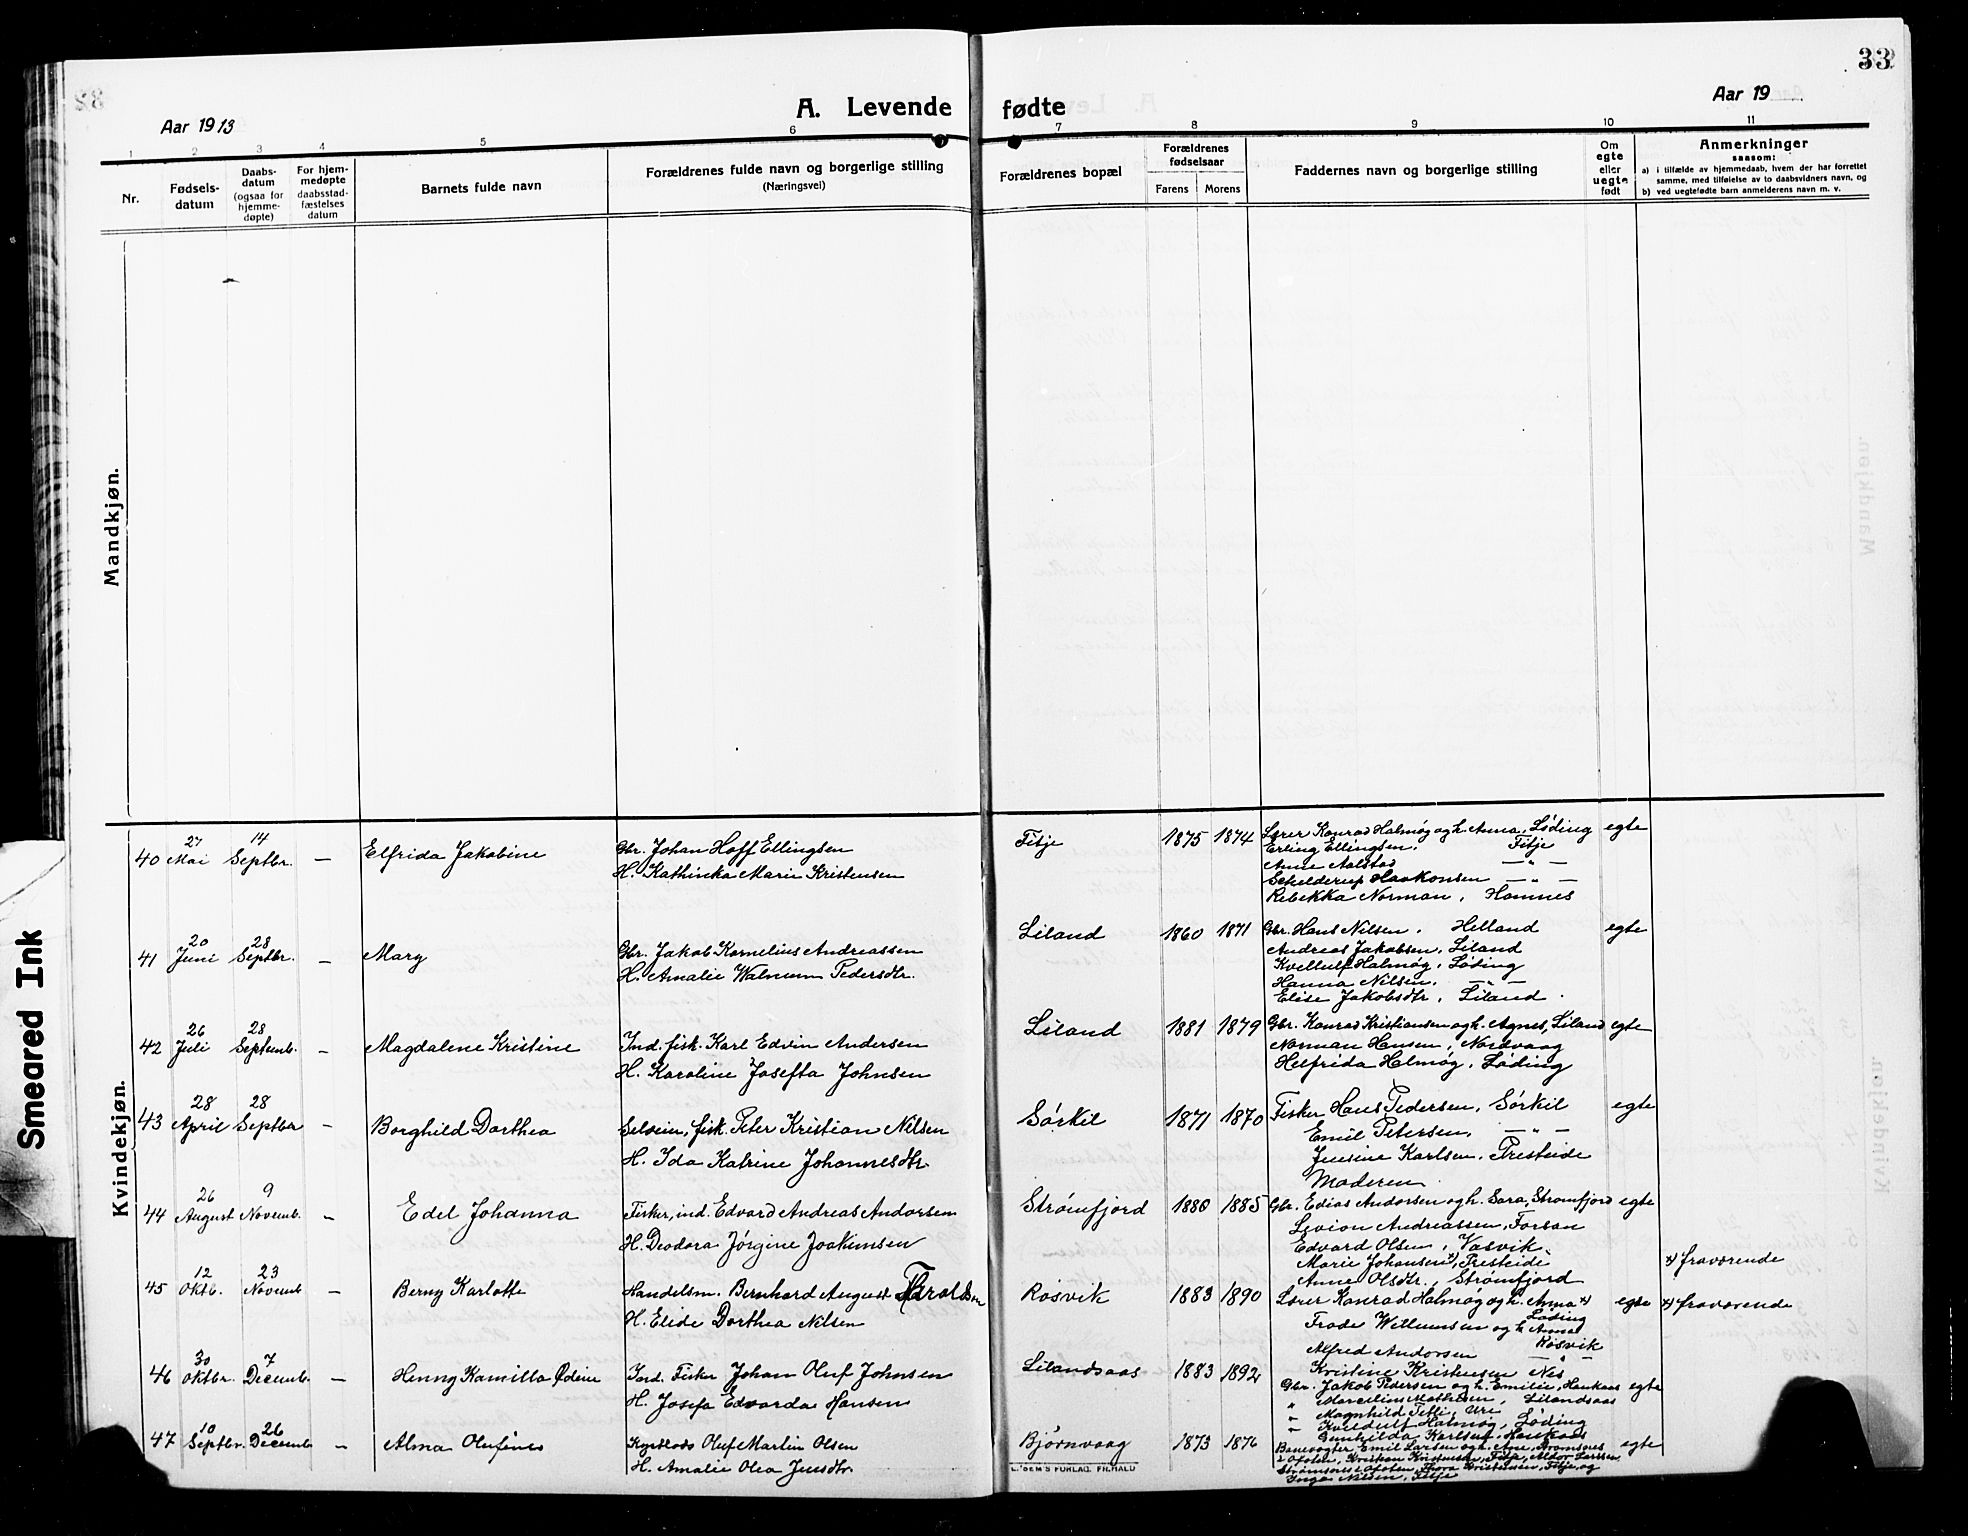 33
Aar 1913
A. Levende fødte
Aar 19
1 2 3 4 5 6 7 8 9 10 11
Nr.
Fødsels-
datum
Daabs-
datum
(ogsaa for
hjemme-
døpte)
For hjem-
medøpte
daabsstad-
fæstelses
datum
Barnets fulde navn
Forældrenes fulde navn og borgerlige stilling
(Næringsvei)
Forældrenes bopæl
Forældrenes
fødselsaar
Farens Morens
Faddernes navn og borgerlige stilling
Om
egte
eller
uegte
født
Anmerkninger
saasom:
a) i tilfælde av hjemmedaab, hvem der har forrettet
samme, med tilføielse av to daabsvidners navn, og
b) ved uegtefødte barn anmelderens navn m. v.
Mandkjøn.
Kvindekjøn.
Smeared Ink
40 27 Mai 14 Septbr. — Elfrida Jakobine
Gbr. Johan Hoff Ellingsen
H. Kathinka Marie Kristensen
Fitje 1875 1874
Lærer Konrad Halmøg og h. Anna, Løding egte
Erling Ellingsen. Fitje
Anne Aalstad — " —
Schelderup Haakonsen — " —
Rebekka Norman, Hamnes
41 20 Juni 28 Septbr. — Mary
Gbr. Jakob Kornelius Andreassen
H. Amalie Walnum Pedersdtr.
Liland 1860 1871
Gbr. Hans Nilsen. Helland egte
Andreas Jakobsen, Liland
Kvellulf Halmøg, Løding
Hanna Nilsen. — " —
Elise Jakobsdtr, Liland.
42 26 Juli 28 Septemb. — Magdalene Kristine
Ind. fisk. Karl Edvin Andersen
H. Karoline Josefta Johnsen
Liland 1881 1879
Gbr. Konrad Kristiansen og h. Agnes, Liland egte
Norman Hansen, Nordvaag
Helfrida Halmøg, Løding
43 28 April 28 Septbr — Borghild Dorthea
Selveier, fisk. Peter Kristian Nilsen
H. Ida Katrine Johannesdtr.
Sørkil 1871 1870
Fisker Hans Pedersen, Sørkil egte
Emil Petersen, — " —
Jensine Karlsen, Presteide
Moderen.
44 26 August 9 Novemb. — Edel Johanna
Fisker, ind. Edvard Andreas Andorsen
H. Deodora Jørgine Joakimsen
Strømfjord 1880 1885
Gbr. Edias Andorsen og h. Sara, Strømfjord egte
Levion Andreassen, Forsan
Edvard Olsen, Vasvik.
Marie Johansen x), Presteide
x) fraværende
Anne Olsdtr., Strømfjord
45 12 Oktb. 23 Novemb — Berny Karlotte
Handelsm. Bernhard August
H. Elide Dorthea Nilsen
Rösvik 1883 1890
Lærer Konrad Halmøg og h. Anna x) egte x) fraværende
Løding
Frode Willumsen og h Anna
Rösvik
Alfred Andorsen — " —
Kristine Kristensen Nes
46 30 Oktbr. 7 Decemb. — Henny Kamilla Ødine
Ind. Fisker Johan Oluf Johnsen
H. Josefa Edvarda Hansen
Lilandsaas 1883 1892
Gbr. Jakob Pedersen og h. Emilie, Haukaas egte
" Marcelius Mathisen, Lilandsaas
Magnhild Fitli, Uri
Kveldulf Halmøg, Løding
Gunhilda Karlsen, Haukaas
47 10 Septbr. 26 Decemb — Alma Olufine
Oluf Martin Olsen
H. Amalie Olea Jensdtr.
Bjørnvaag 1873 1876
Banevogter Emil Larsen og h. Ane, Strømsnes egte
i Ofoten, Kristian Kristensen, Fitje, Aldor Larssen
Strømsnes i Ofoten, Thora Kristensen, Fitje, og
Inga Nilsen, Fitje